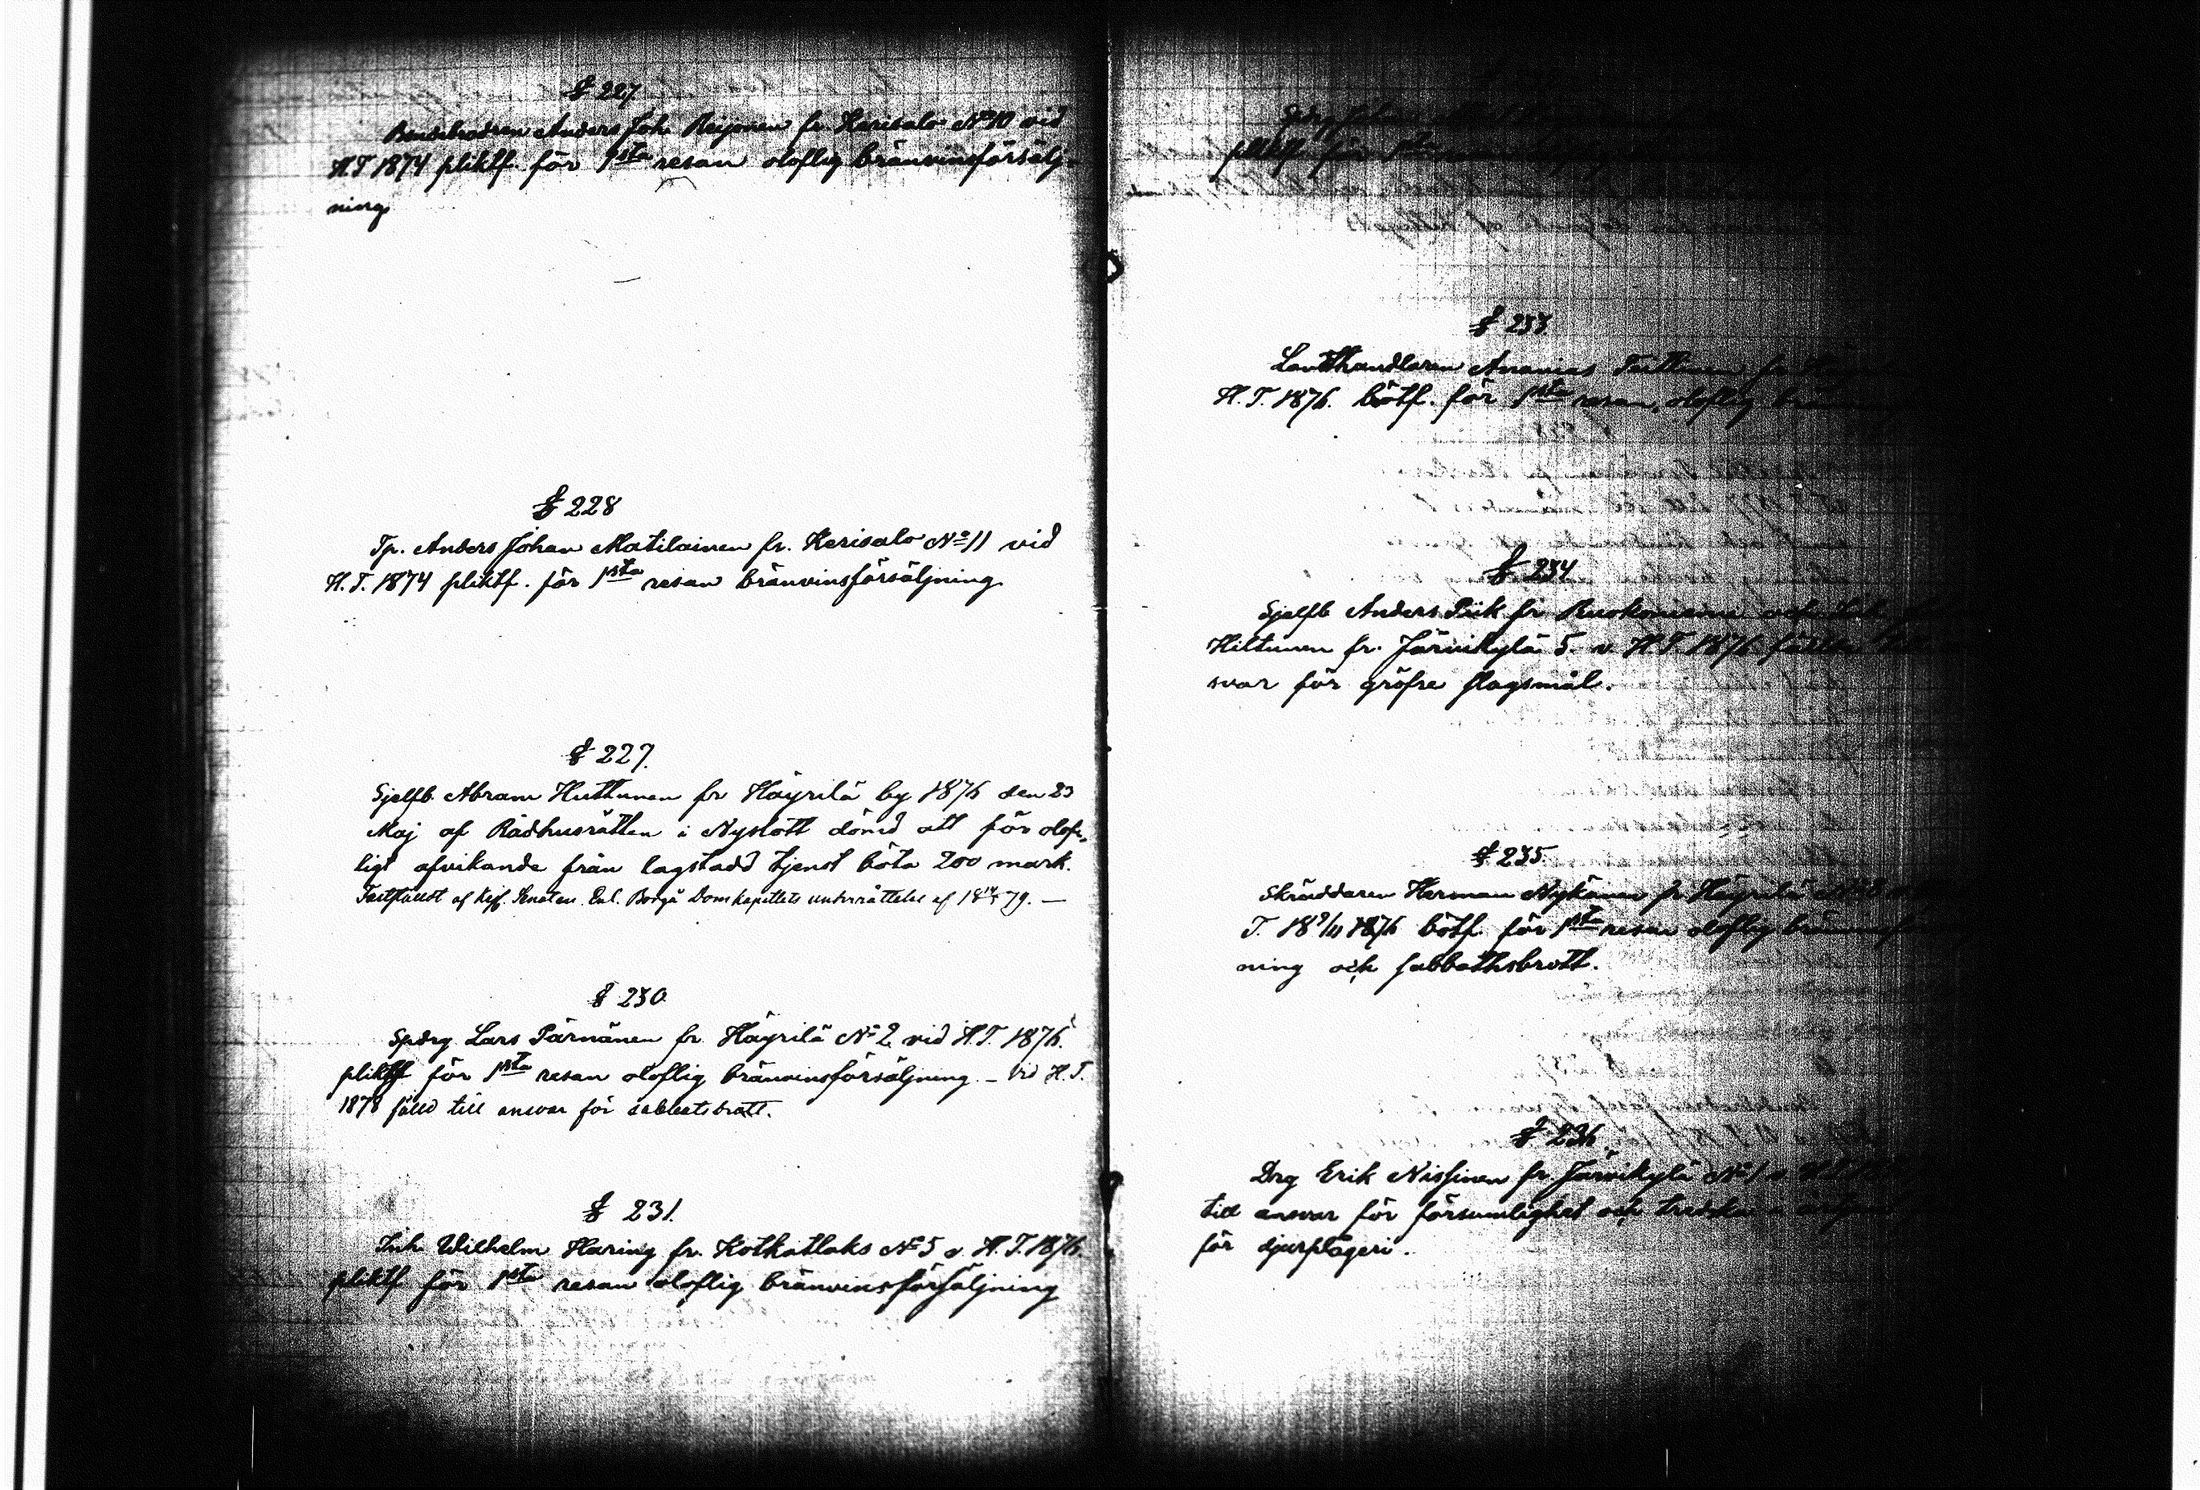 § 227
Bondebodren Anders Joh. Reijonen fr. Kerisalo No 10 vid
H.T 1874 pliktf. för 1sta resan oloflig bränvinsförsälj-
ning
§ 228
Tp. Anders Johan Matilainen fr. Kerisalo No 11 vid
H.T. 1874 pliktf. för 1sta resan bränvinsförsäljning
§ 227.
Sjelfb. Abram Huttunen fr Häyrilä by 1876 den 23
Maj af Rådhusrätten i Nyslott dömd att för olof-
ligt afvikande från lagstadd tjenst böta 200 mark.
Fastställdt af Kejs. Senaten. Enl. Borgå Domkapitlets underrättelse af 79. —
§ 230
Spdrg Lars Pärnänen fr. Häyrilä No 2 vid H.T. 1876.
pliktf för 1sta resan oloflig bränvinsförsäljning — Vid H.T.
1878 fälld till ansvar för sabbatsbrott.
§ 231.
Inh. Wilhelm Haring fr. Kotkatlaks No 5 v. H.T. 1876
pliktf för 1sta resan oloflig bränvinsförsäljning
pliktf för 1sta
§ 233.
Landthandlaren Ananias Teittinen fr
H.T. 1876. bötf. för 1sta resan oloflig
§ 234
Sjelfb Anders Piik fr Ruokoniemi och Inh.
Hiltunen fr. Järvikylä 5. v. H.T. 1876 fällda
svar för gröfre slagsmål.
§ 235.
Skräddaren Herman Nykänen fr Häyrilä No 8
T. 18 9/11 1876 bötf. för 1sta resan oloflig
ning och sabbathsbrott.
§ 236
Drg Erik Nissinen fr. Järvikylä No 1 v H.T
till ansvar för försumlighet och tredska
för djurplågeri.